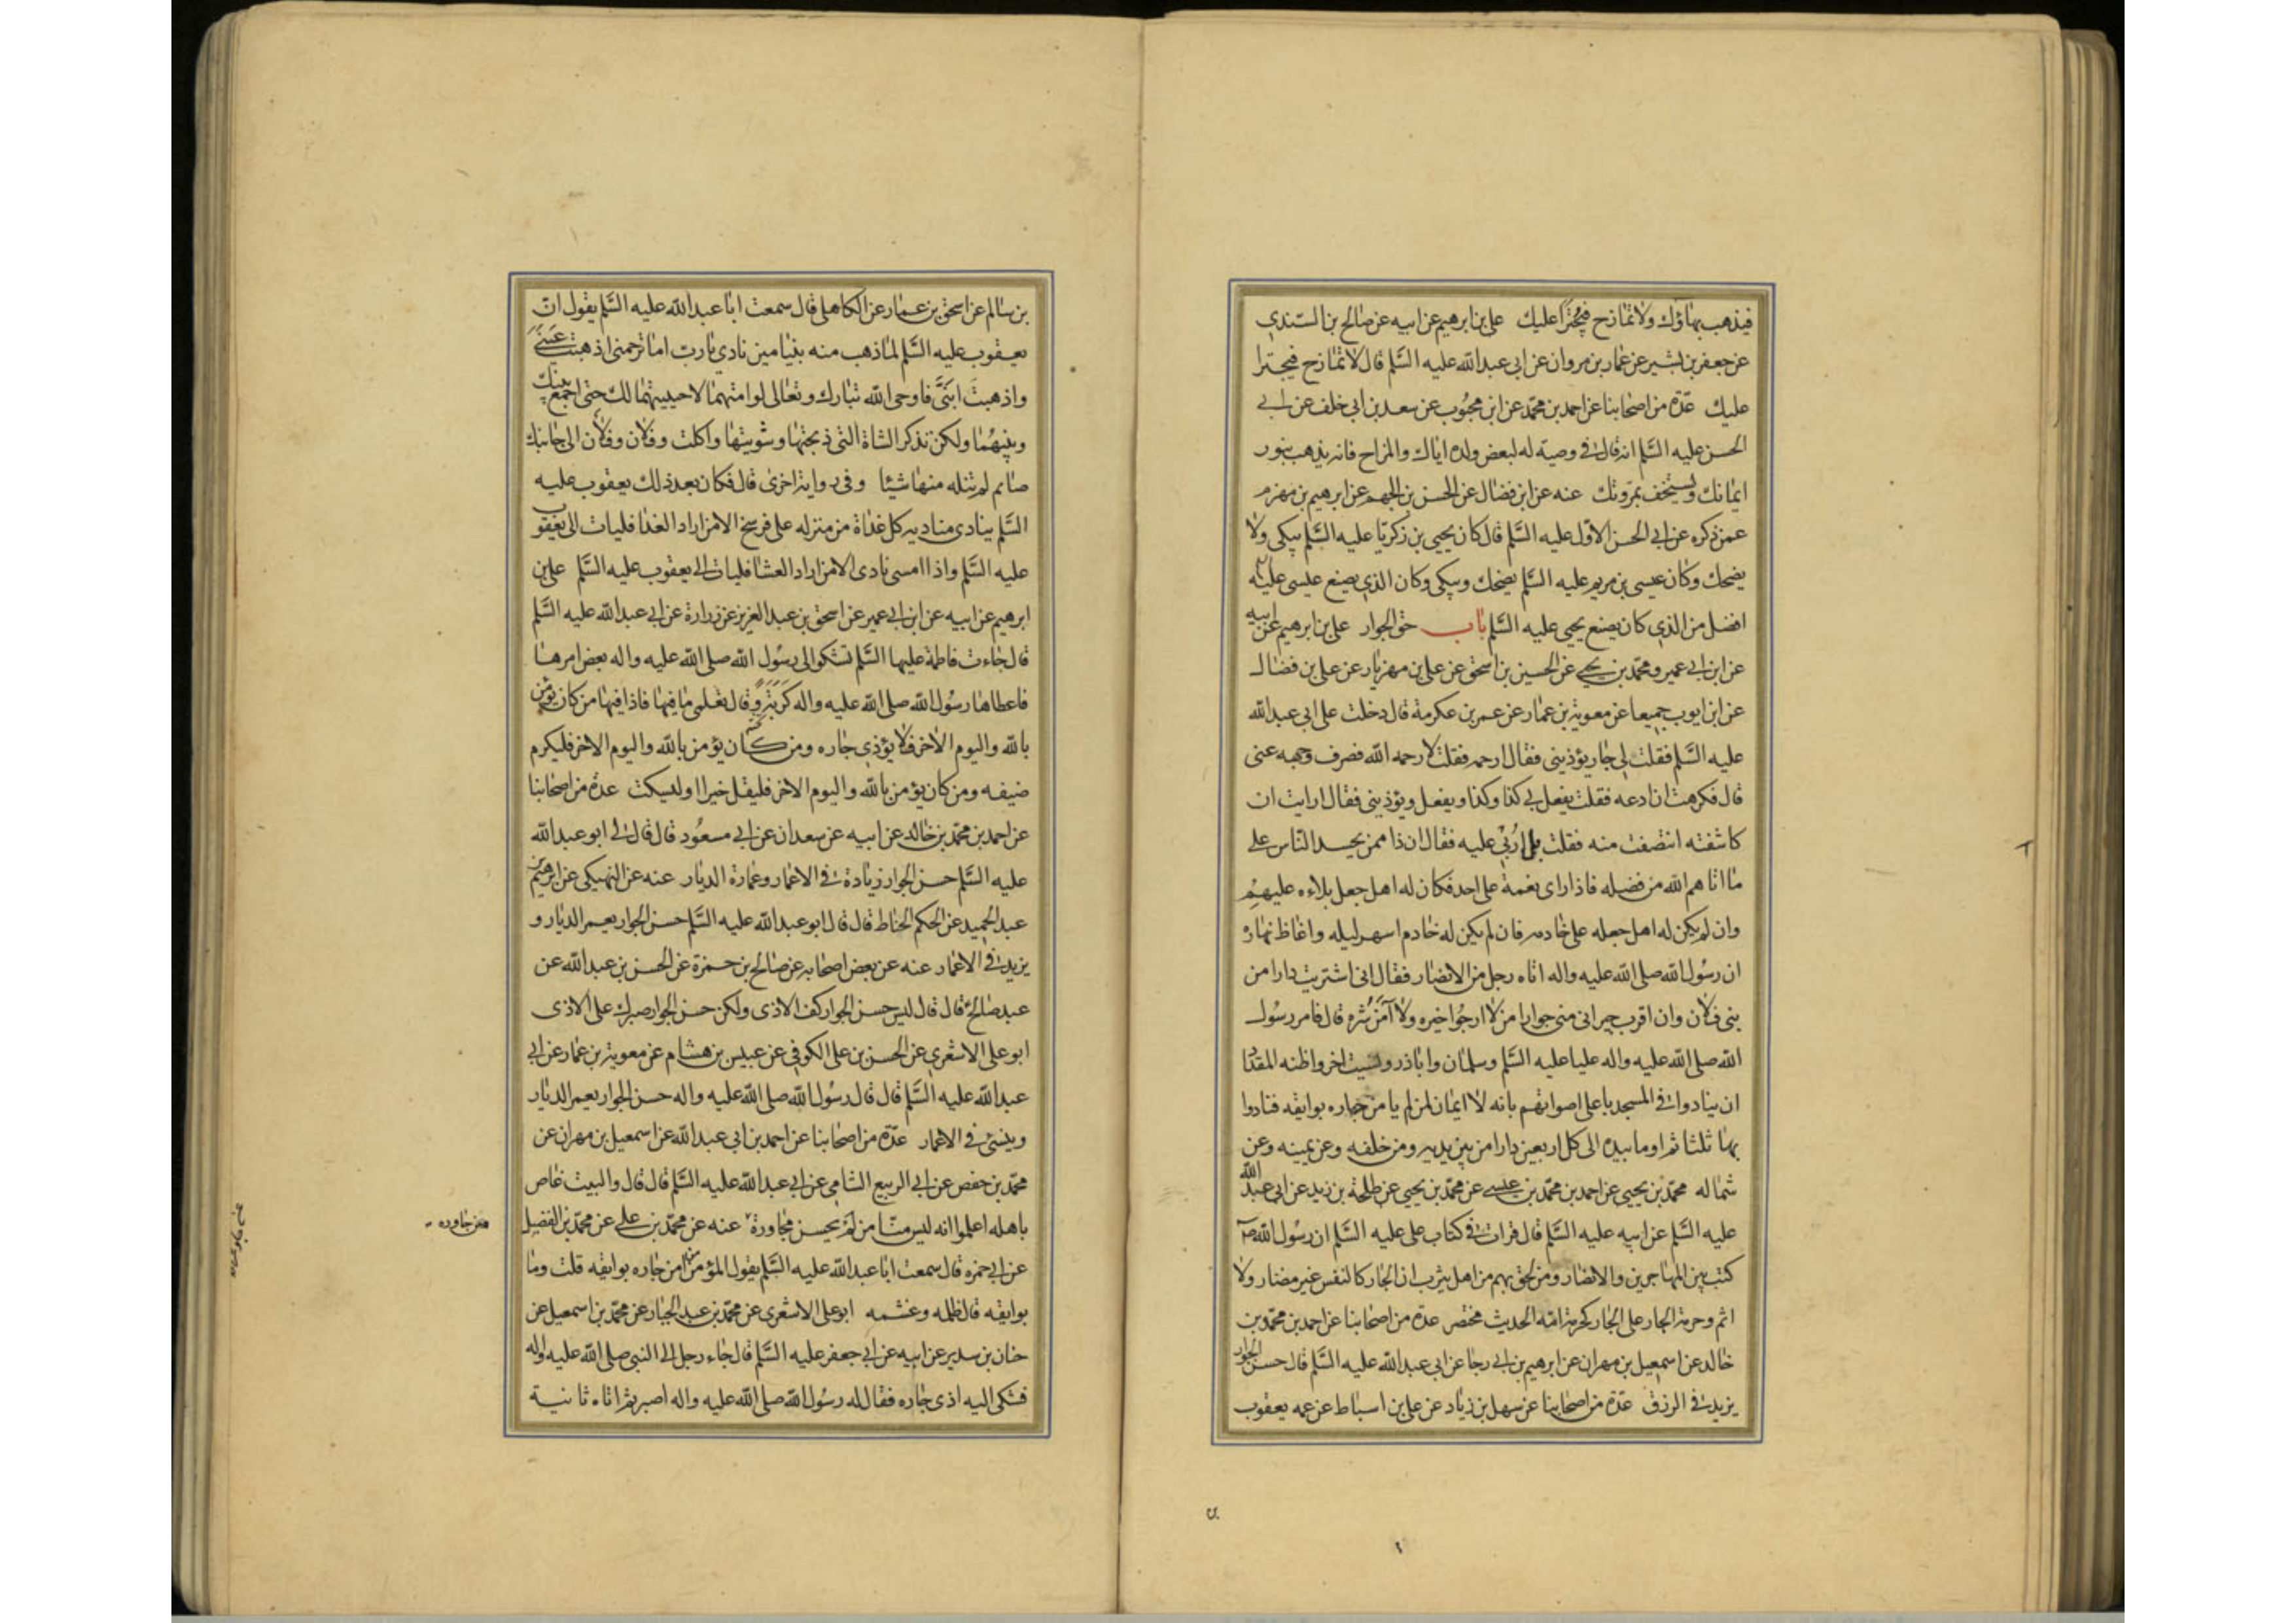 فيذهب بهاؤك ولا تمازح فيجترأ عليك علي بن ابرهيم عن ابيه عن صالح بن السندي
عن جعفر بن بشير عن عمار بن مروان عن ابي عبد الله عليه السلم قال لا تمازح فيجترا
عليك عدة من اصحابنا عن احمد بن محمد عن ابن محبوب عن سعد بن ابي خلف عن ابي
الحسن عليه السلم انه قال في وصية له لبعض ولده اياك والمزاح فانه يذهب بنور
ايمانك ويستخف بمروتك عنه عن ابن فضال عن الحسن بن الجهم عن ابرهيم بن مهزم
عمن ذكره عن ابي الحسن الاول عليه السلم قال كان يحيي بن زكريا عليه السلم يبكي ولا
يضحك وكان عيسى بن مريم عليه السلم يضحك ويبكي وكان الذي يصنع عيسى عليه
افضل من الذي كان يصنع يحيى عليه السلم باب حق الجوار علي بن ابرهيم عن ابيه
عن ابن ابي عمير ومحمد بن يحيي عن الحسين بن اسحق عن علي بن مهزيار عن علي بن فضال
عن ابن ايوب جميعا عن معوية بن عمار عن عمر بن عكرمة قال دخلت على ابي عبد الله
عليه السلم فقلت لي جار يؤذيني فقال ارحمه فقلت لا رحمه الله فصرف وجهه عني
قال فكرهت ان ادعه فقلت يفعل بي كذا وكذا ويفعل ويؤذيني فقال ارايت ان
كاشفته انتصفت منه فقلت بلى اربي عليه فقال ان ذا ممن يحسد الناس على
ما اتاهم الله من فضله فاذا راى نعمة على احد فكان له اهل جعل بلاءه عليهم
وان لم يكن له اهل جعله على خادمه فان لم يكن له خادم اسهر ليله واغاظ نهاره
ان رسول الله صلى الله عليه واله اتاه رجل من الانصار فقال اني اشتريت دارا من
بني فلان وان اقرب جيراني مني جوارا من لا ارجو خيره ولا آمن شره قال فامر رسول
الله صلى الله عليه واله عليا عليه السلم وسلمان واباذر ونسيت اخر واظنه المقداد
ان ينادوا في المسجد باعلى اصواتهم بانه لا ايمان لمن لم يامن جاره بوايقه فنادوا
بها ثلثا ثم اوما بيده الى كل اربعين دارا من بين يديه ومن خلفه وعن يمينه وعن
شماله محمد بن يحيي عن احمد بن محمد بن عيسى عن محمد بن يحيي عن طلحة بن زيد عن ابي عبد الله
عليه السلم عن ابيه عليه السلم قال قرات في كتاب علي عليه السلم ان رسول الله ص
كتب بين المهاجرين والانصار ومن لحق بهم من اهل يثرب ان الجار كالنفس غير مضار ولا
اثم وحرمة الجار على الجار كحرمة امه الحديث مختصر عدة من اصحابنا عن احمد بن محمد بن
خالد عن اسمعيل بن مهران عن ابرهيم بن ابي رجا عن ابي عبد الله عليه السلم قال حسن الجوار
يزيد في الرزق عدة من اصحابنا عن سهل بن زياد عن علي بن اسباط عن عمه يعقوب
بن سالم عن اسحق بن عمار عن الكاهلي قال سمعت ابا عبد الله عليه السلم يقول ان
يعقوب عليه السلم لما ذهب منه بنيامين نادى يا رب اما ترحمني اذهبت عيني
واذهبت ابني فاوحى الله تبارك وتعالى لو امتهما لاحييتهما لك حتى اجمع بينك
وبينهما ولكن تذكر الشاة التي ذبحتها وشويتها واكلت وفلان وفلان الى جانبك
صايم لم تنله منها شيئا وفي رواية اخرى قال فكان بعد ذلك يعقوب عليه
السلم ينادي مناديه كل غداة من منزله على فرسخ الا من اراد الغدا فليات الى يعقوب
عليه السلم واذا امسى نادى الا من اراد العشا فليات الى يعقوب عليه السلم علي بن
ابرهيم عن ابيه عن ابن ابي عمير عن اسحق بن عبد العزيز عن زرارة عن ابي عبد الله عليه السلم
قال جاءت فاطمة عليها السلم تشكو الى رسول الله صلى الله عليه واله بعض امرها
فاعطاها رسول الله صلى الله عليه واله وقال تعلمي ما فيها فاذا فيها من كان يؤمن
بالله واليوم الاخر فلا يؤذي جاره ومن كان يؤمن بالله واليوم الاخر فليكرم
ضيفه ومن كان يؤمن بالله واليوم الاخر فليقل خيرا او ليسكت عدة من اصحابنا
عن احمد بن محمد بن خالد عن ابيه عن سعدان عن ابي مسعود قال قال لي ابو عبد الله
عليه السلم حسن الجوار زيادة في الاعمار وعمارة الديار عنه عن النهيكي عن ابرهيم بن
عبد الحميد عن الحكم الحناط قال قال ابو عبد الله عليه السلم حسن الجوار يعمر الديار و
يزيد في الاعمار عنه عن بعض اصحابه عن صالح بن حمزة عن الحسن بن عبد الله عن
عبد صالح قال قال ليس حسن الجوار كف الاذى ولكن حسن الجوار صبرك على الاذى
ابو علي الاشعري عن الحسن بن علي الكوفي عن عبيس بن هشام عن معوية بن عمار عن ابي
عبد الله عليه السلم قال قال رسول الله صلى الله عليه واله حسن الجوار يعمر الديار
وينسئ في الاعمار عدة من اصحابنا عن احمد بن ابي عبد الله عن اسمعيل بن مهران عن
محمد بن حفص عن ابي الربيع الشامي عن ابي عبد الله عليه السلم قال قال والبيت غاص
باهله اعلموا انه ليس منا من لم يحسن مجاورة عنه عن محمد بن علي عن محمد بن الفضيل
من جاوره
عن ابي حمزه قال سمعت ابا عبد الله عليه السلم يقول المؤمن من امن جاره بوايقه قلت وما
بوايقه قال ظلمه وغشمه ابو علي الاشعري عن محمد بن عبد الجبار عن محمد بن اسمعيل عن
حنان بن سدير عن ابيه عن ابي جعفر عليه السلم قال جاء رجل الى النبي صلى الله عليه واله
فشكى اليه اذى جاره فقال له رسول الله صلى الله عليه واله اصبر ثم اتاه ثانية